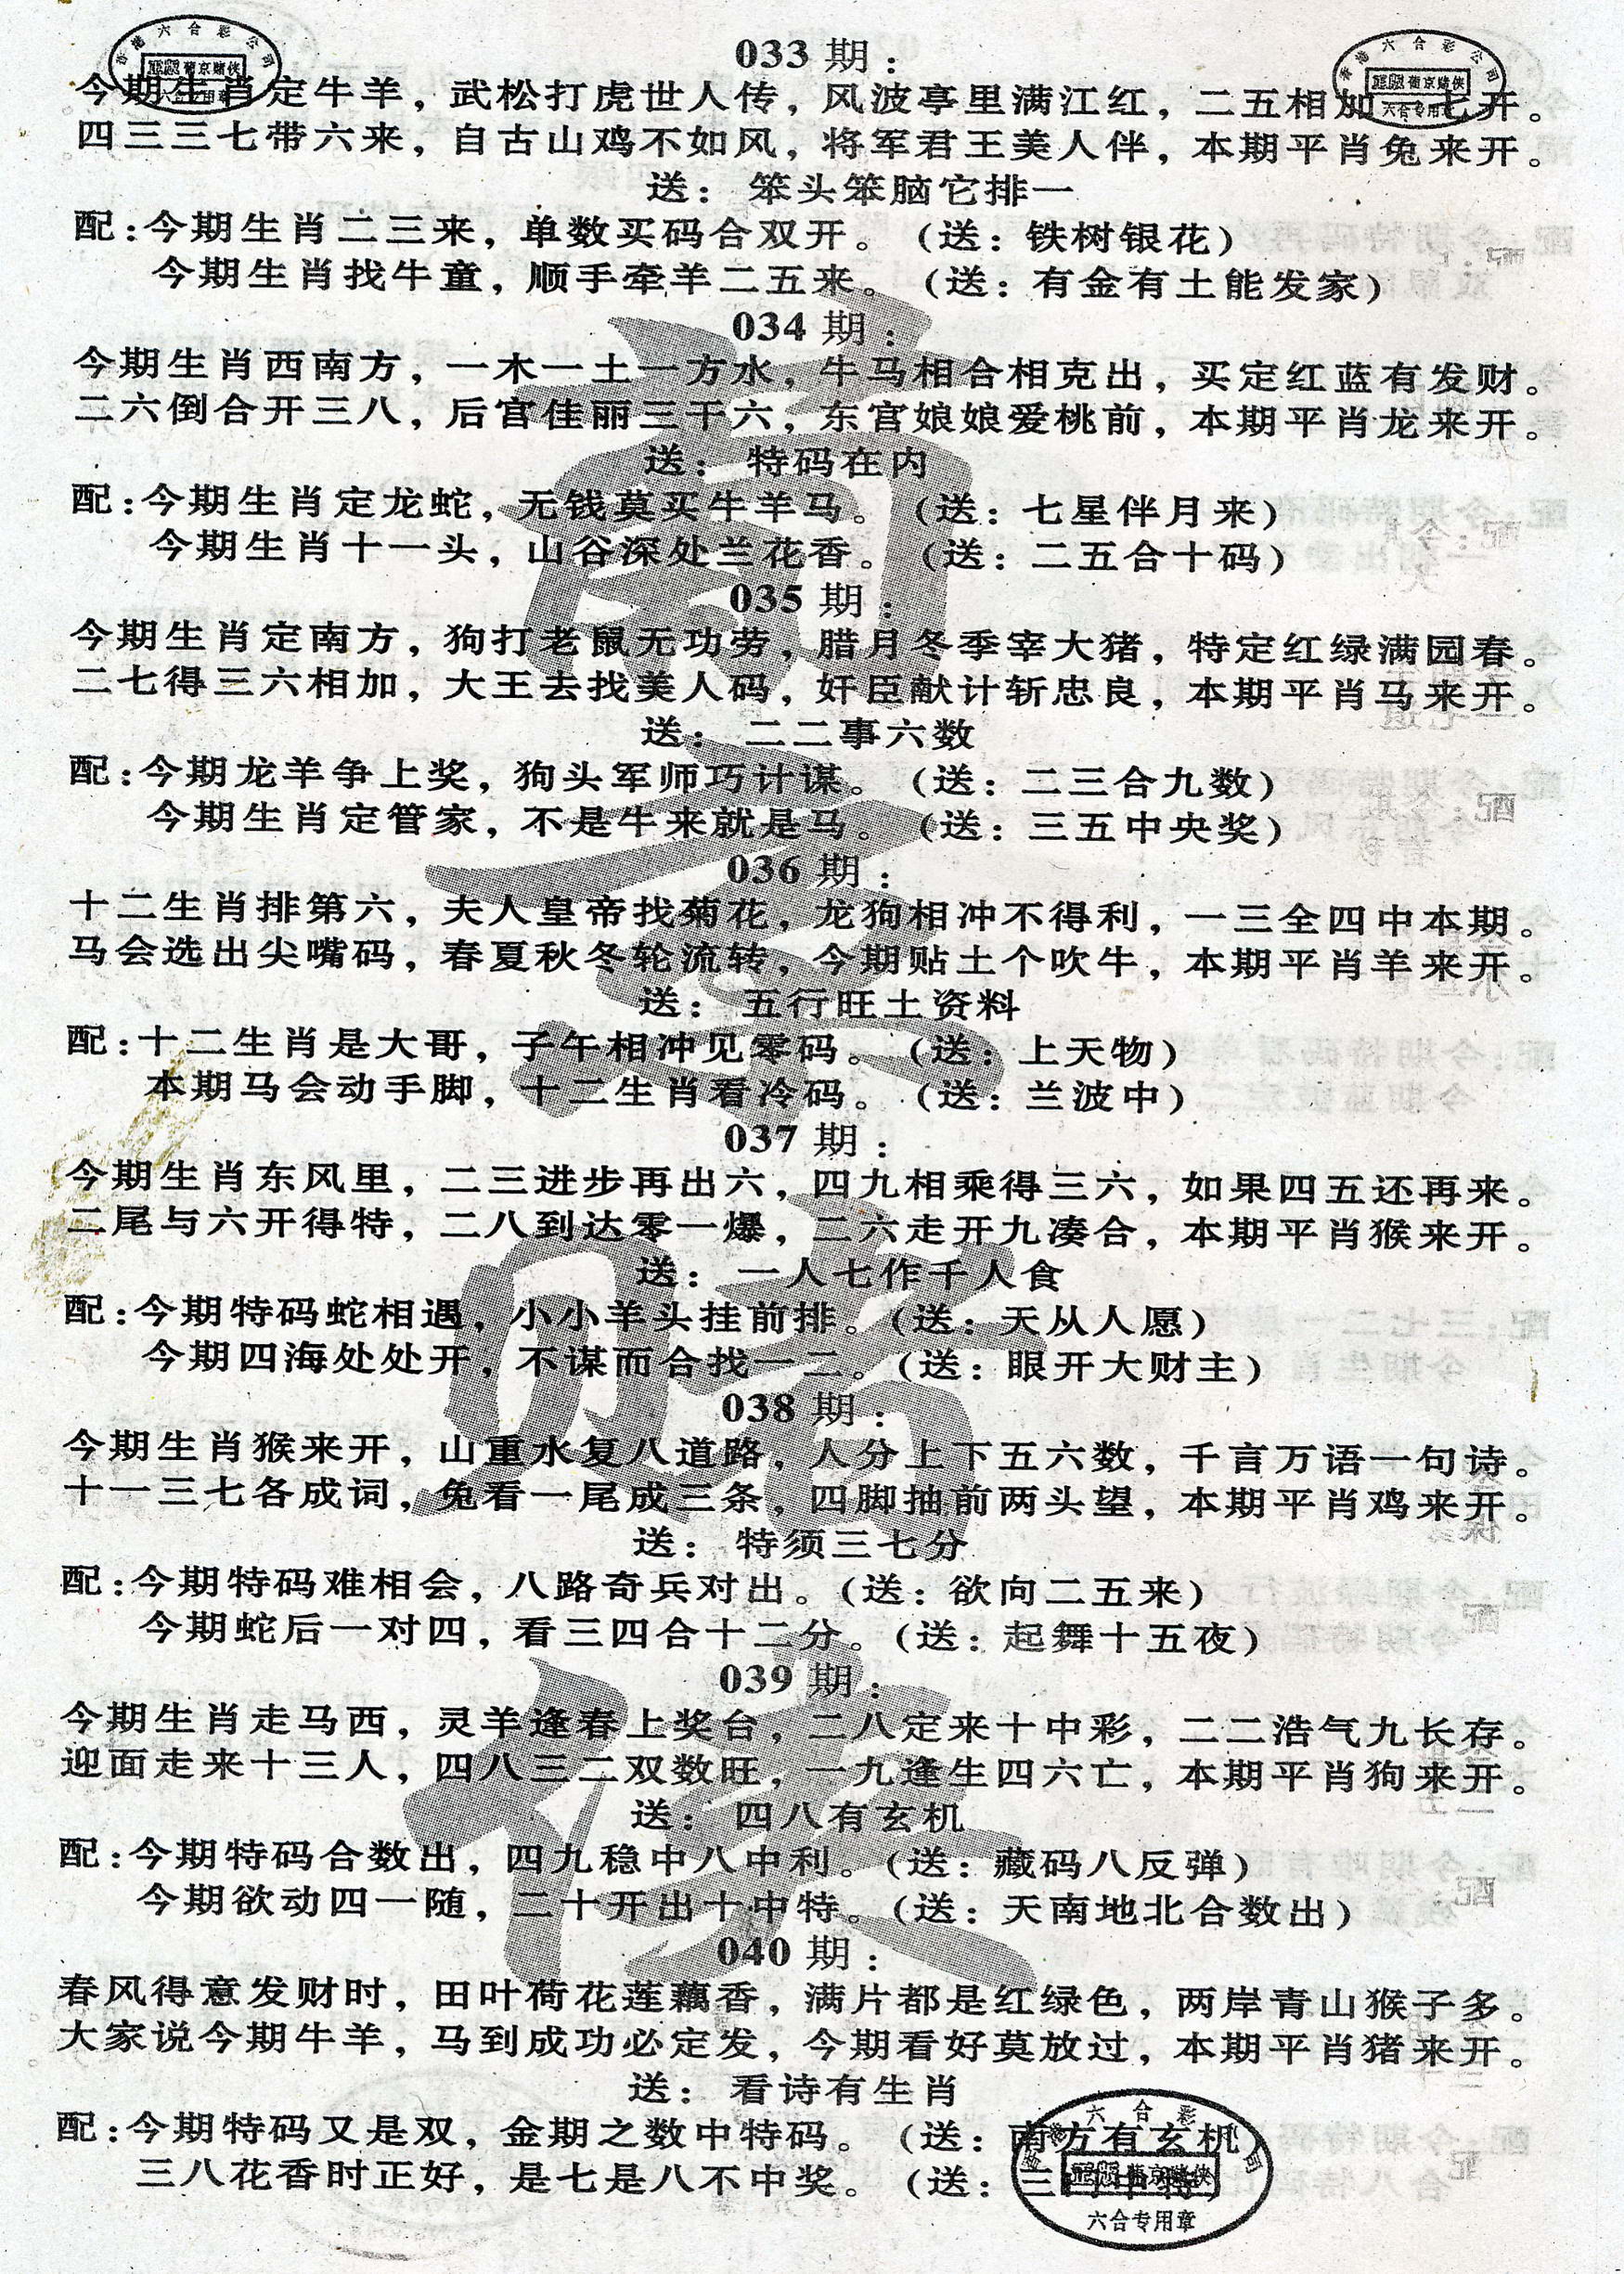 033 期：
今期生肖定牛羊，武松打虎世人传，风波亭里满江红，二五相加一七开。
四三三七带六来，自古山鸡不如风，将军君王美人伴，本期平肖兔来开。
送：笨头笨脑它排一
配：今期生肖二三来，单数买码合双开。（送：铁树银花）
今期生肖找牛童，顺手牵羊二五来。（送：有金有土能发家）
034 期：
今期生肖西南方，一木一土一方水，牛马相合相克出，买定红蓝有发财。
二六倒合开三八，后宫佳丽三千六，东宫娘娘爱桃前，本期平肖龙来开。
送：特码在内
配：今期生肖定龙蛇，无钱莫买牛羊马。（送：七星伴月来）
今期生肖十一头，山谷深处兰花香。（送：二五合十码）
035 期：
今期生肖定南方，狗打老鼠无功劳，腊月冬季宰大猪，特定红绿满园春。
二七得三六相加，大王去找美人码，奸臣献计斩忠良，本期平肖马来开。
送：二二事六数
配：今期龙羊争上奖，狗头军师巧计谋。（送：二三合九数）
今期生肖定管家，不是牛来就是马。（送：三五中央奖）
036 期：
十二生肖排第六，夫人皇帝找菊花，龙狗相冲不得利，一三全四中本期。
马会选出尖嘴码，春夏秋冬轮流转，今期贴土个吹牛，本期平肖羊来开。
送：五行旺土资料
配：十二生肖是大哥，子午相冲见零码。（送：上天物）
本期马会动手脚，十二生肖看冷码。（送：兰波中）
037 期：
今期生肖东风里，二三进步再出六，四九相乘得三六，如果四五还再来。
二尾与六开得特，二八到达零一爆，二六走开九凑合，本期平肖猴来开。
送：一人七作千人食
配：今期特码蛇相遇，小小羊头挂前排。（送：天从人愿）
今期四海处处开，不谋而合找一二。（送：眼开大财主）
038 期：
今期生肖猴来开，山重水复八道路，人分上下五六数，千言万语一句诗。
十一三七各成词，兔看一尾成三条，四脚抽前两头望，本期平肖鸡来开。
送：特须三七分
配：今期特码难相会，八路奇兵对出。（送：欲向二五来）
今期蛇后一对四，看三四合十二分。（送：起舞十五夜）
039 期：
今期生肖走马西，灵羊逢春上奖台，二八定来十中彩，二二浩气九长存。
迎面走来十三人，四八三二双数旺，一九逢生四六亡，本期平肖狗来开。
送：四八有玄机
配：今期特码合数出，四九稳中八中利。（送：藏码八反弹）
今期欲动四一随，二十开出十中特。（送：天南地北合数出）
040 期：
春风得意发财时，田叶荷花莲藕香，满片都是红绿色，两岸青山猴子多。
大家说今期牛羊，马到成功必定发，今期看好莫放过，本期平肖猪来开。
送：看诗有生肖
配：今期特码又是双，金期之数中特码。（送：南方有玄机
三八花香时正好，是七是八不中奖。（送：三四中特）
六合专用章